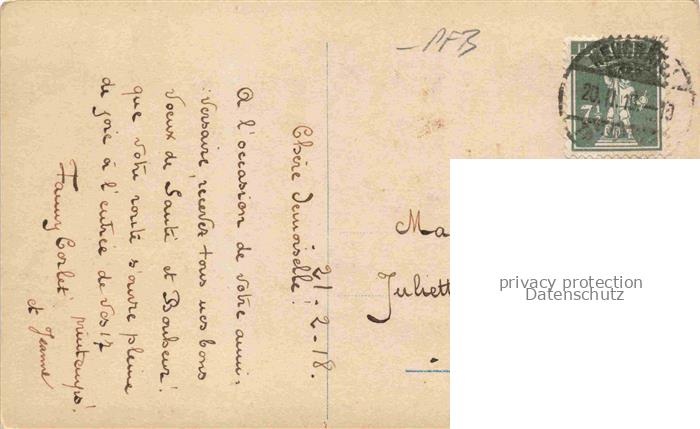 PFB
21-2-18.
Chère Demoiselle!
A l'occasion de votre anni-
versaire, recevez tous nos bons
voeux de Santé et Bonheur!
que votre route s'ouvre pleine
de joie à l'entrée de vos 17
printemps!
Fanny Corlet
et Jeanne
Ma
Juliett
7½
privacy protection
Datenschutz